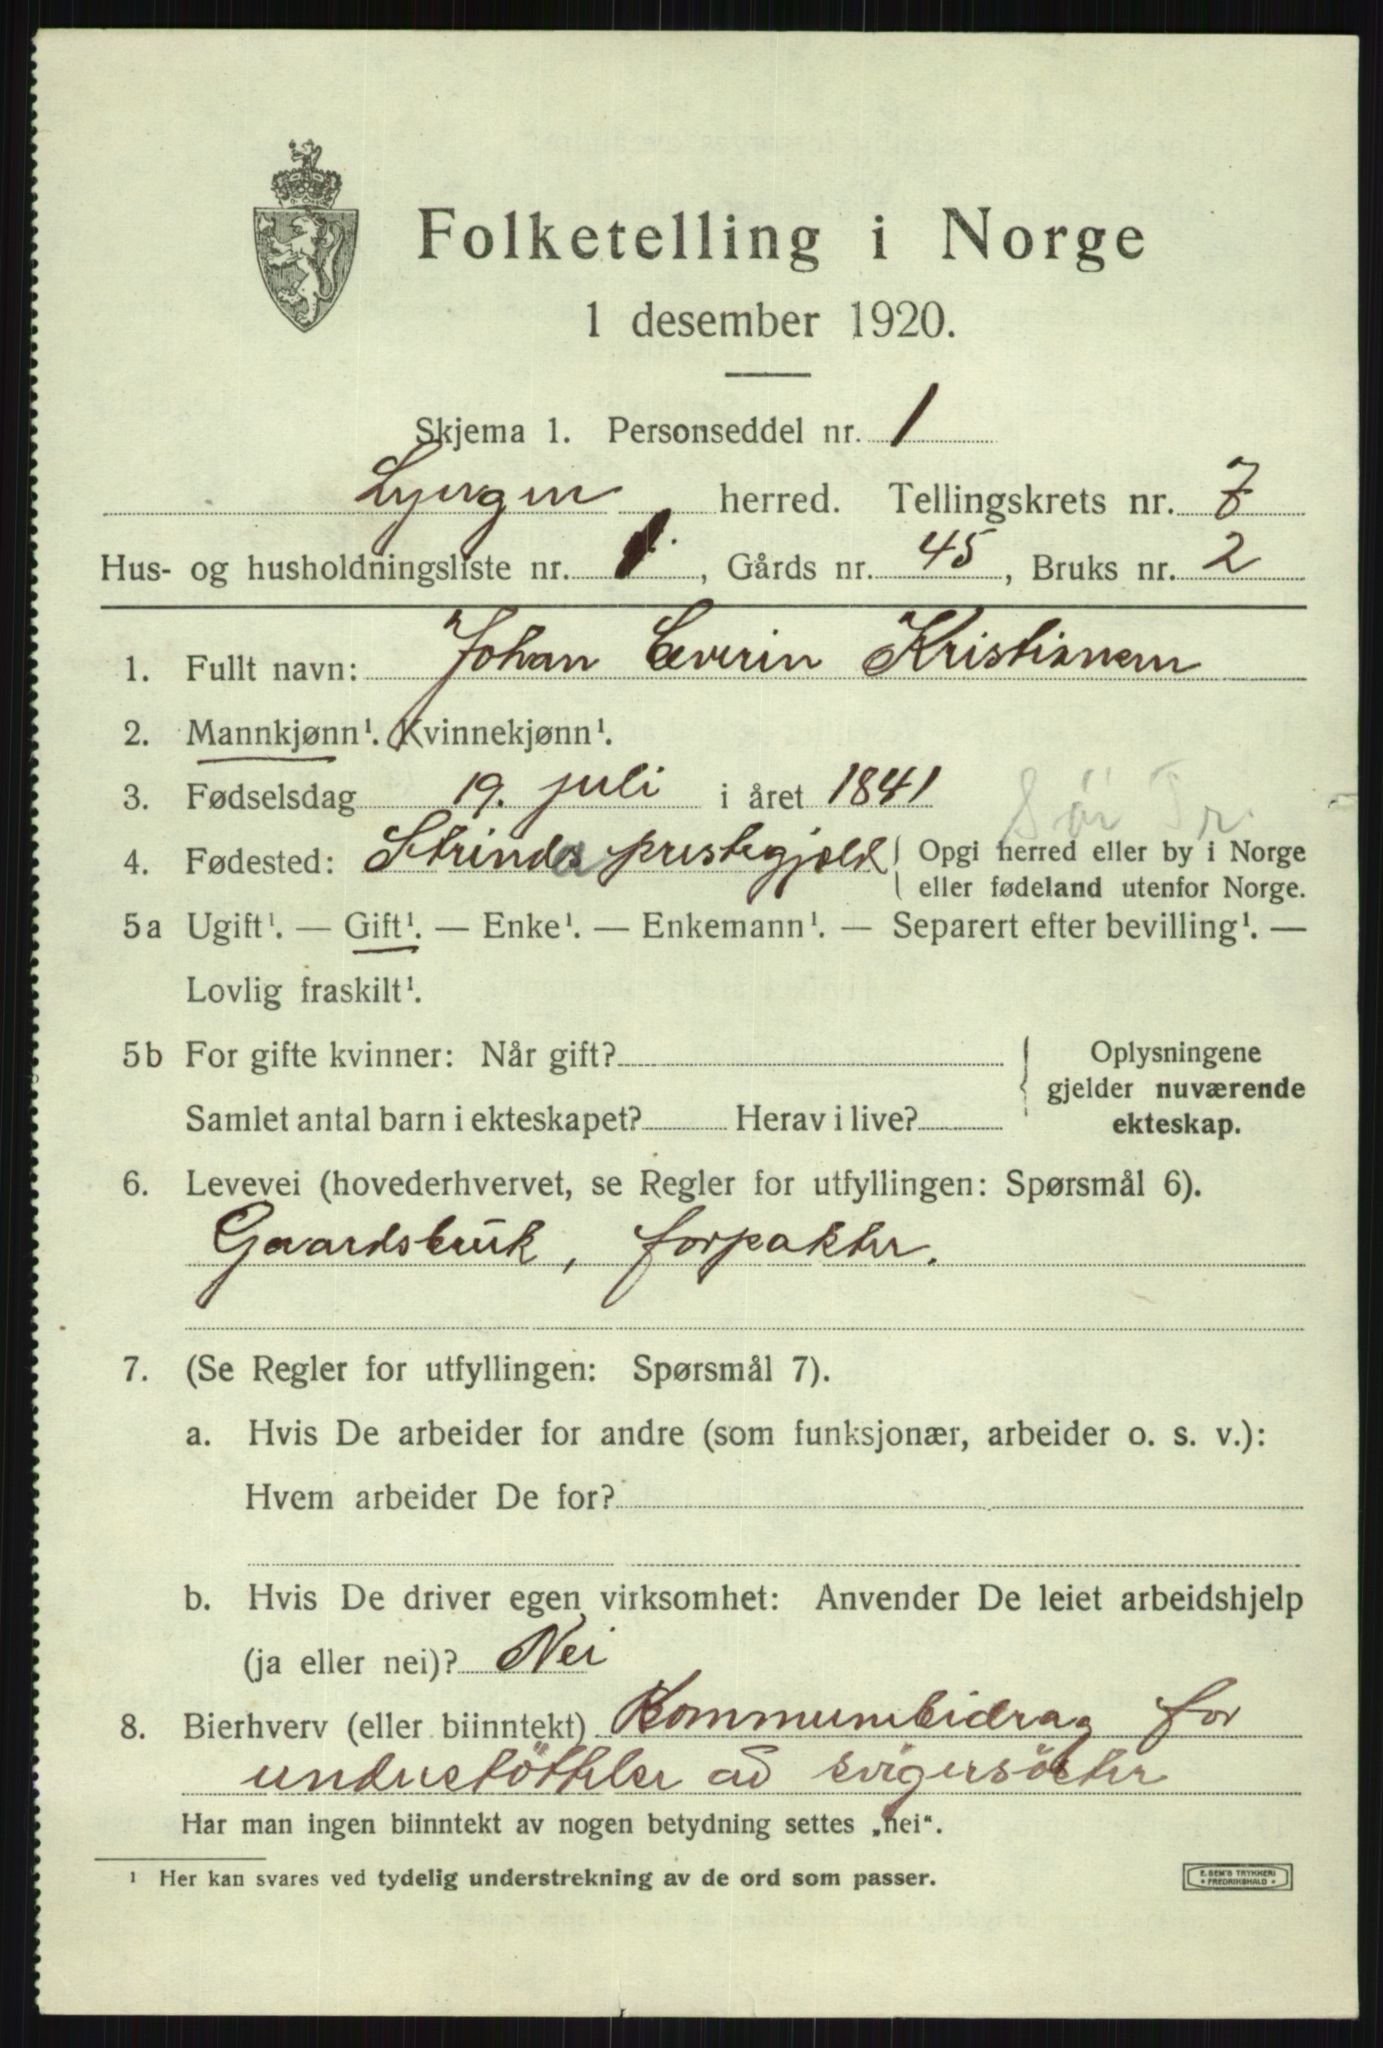 Folketelling i Norge
1 desember 1920.
Skjema 1. Personseddel nr. 1
Lyngen herred. Tellingskrets nr. 7
Hus- og husholdningsliste nr. 1. , Gårds nr. 45 , Bruks nr. 2
1. Fullt navn: Johan Everin Kristiansen
2. Mannkjønn¹. Kvinnekjønn¹.
3. Fødselsdag 19. juli i året 1841
Sør Tr.
4. Fødested: Strinda prestegjeld { Opgi herred eller by i Norge
eller fødeland utenfor Norge.
5a Ugift¹. — Gift¹. — Enke¹. — Enkemann¹. — Separert efter bevilling¹. —
Lovlig fraskilt¹.
5b For gifte kvinner: Når gift? { Oplysningene
gjelder nuværende
Samlet antal barn i ekteskapet? Herav i live? ekteskap.
6. Levevei (hovederhvervet, se Regler for utfyllingen: Spørsmål 6).
Gaardsbruk, forpakter.
7. (Se Regler for utfyllingen: Spørsmål 7).
a. Hvis De arbeider for andre (som funksjonær, arbeider o. s. v.):
Hvem arbeider De for?
b. Hvis De driver egen virksomhet: Anvender De leiet arbeidshjelp
(ja eller nei)? Nei
8. Bierhverv (eller biinntekt) Kommunebidrag for
understöttelse av svigersöster
Har man ingen biinntekt av nogen betydning settes „nei“.
¹ Her kan svares ved tydelig understrekning av de ord som passer.
E. SEM'S TRYKKERI
• FREDRIKSHALD •